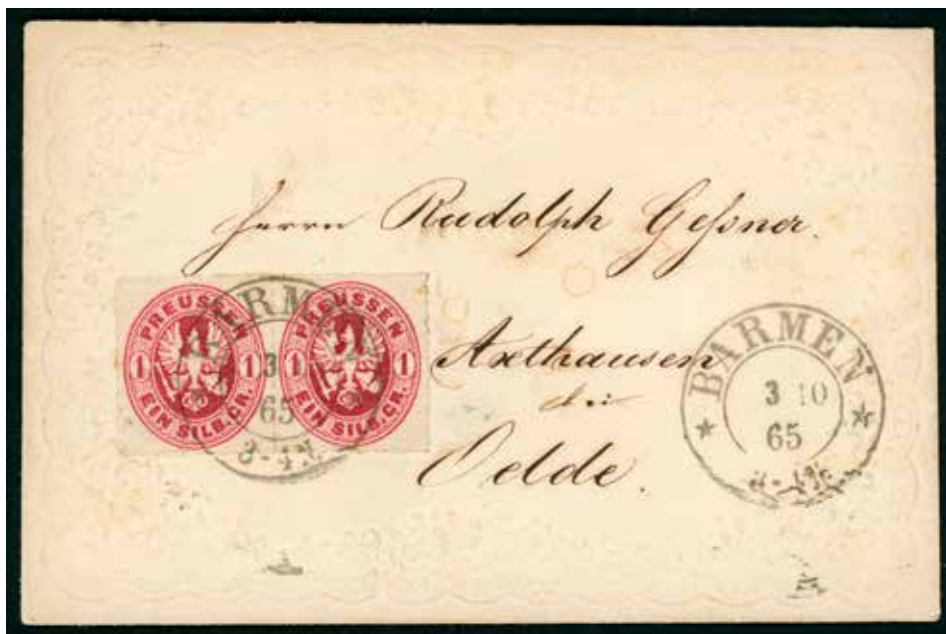 Herrn Rudolph Geßner.
Axthausen
bei
Oelde.
PREUSSEN
1 1
EIN SILB.GR.
PREUSSEN
1 1
EIN SILB.GR.
BARMEN
3 10
65
3-4N.
BARMEN
3 10
65